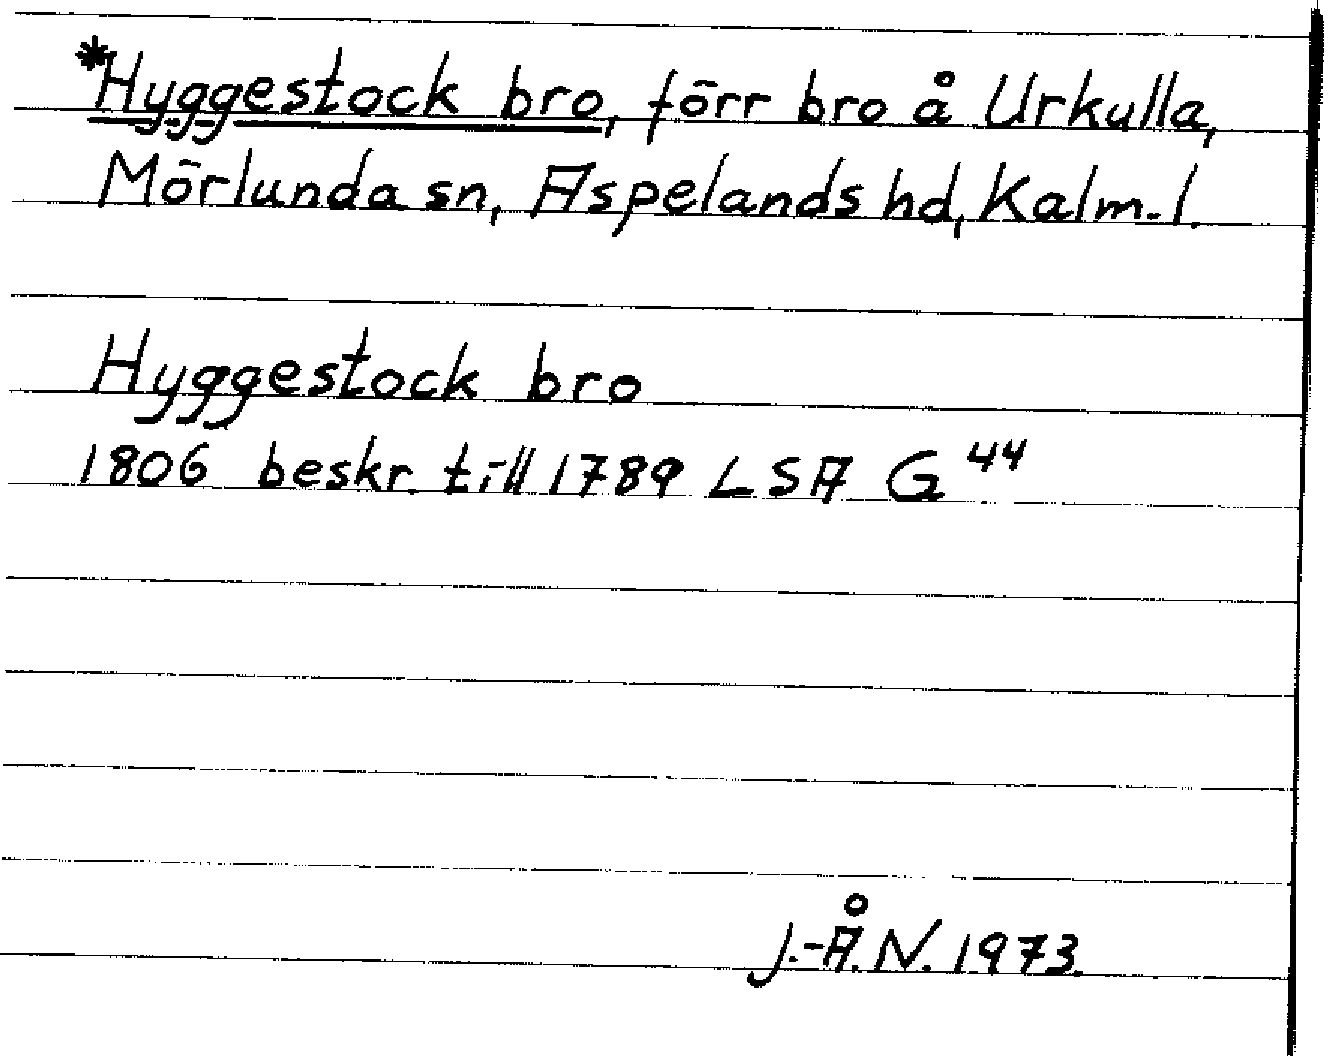 *Hyggestock bro, förr bro å Urkulla,
Mörlunda sn, Aspelands hd, Kalm. l.
Hyggestock bro
1806 beskr. till 1789 LSA G 44
J.-Å. N. 1973.